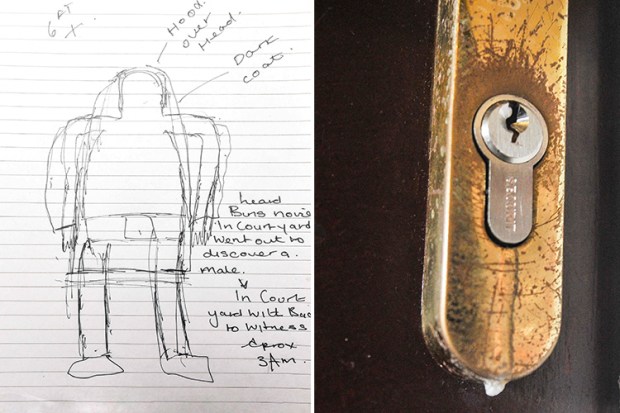 Hood.
over
Head.
Dark
coat.
heard
Bins
In Courtyard
went out to
discover a.
male.
In Court
yard with
to witness
Aprox
3Am.